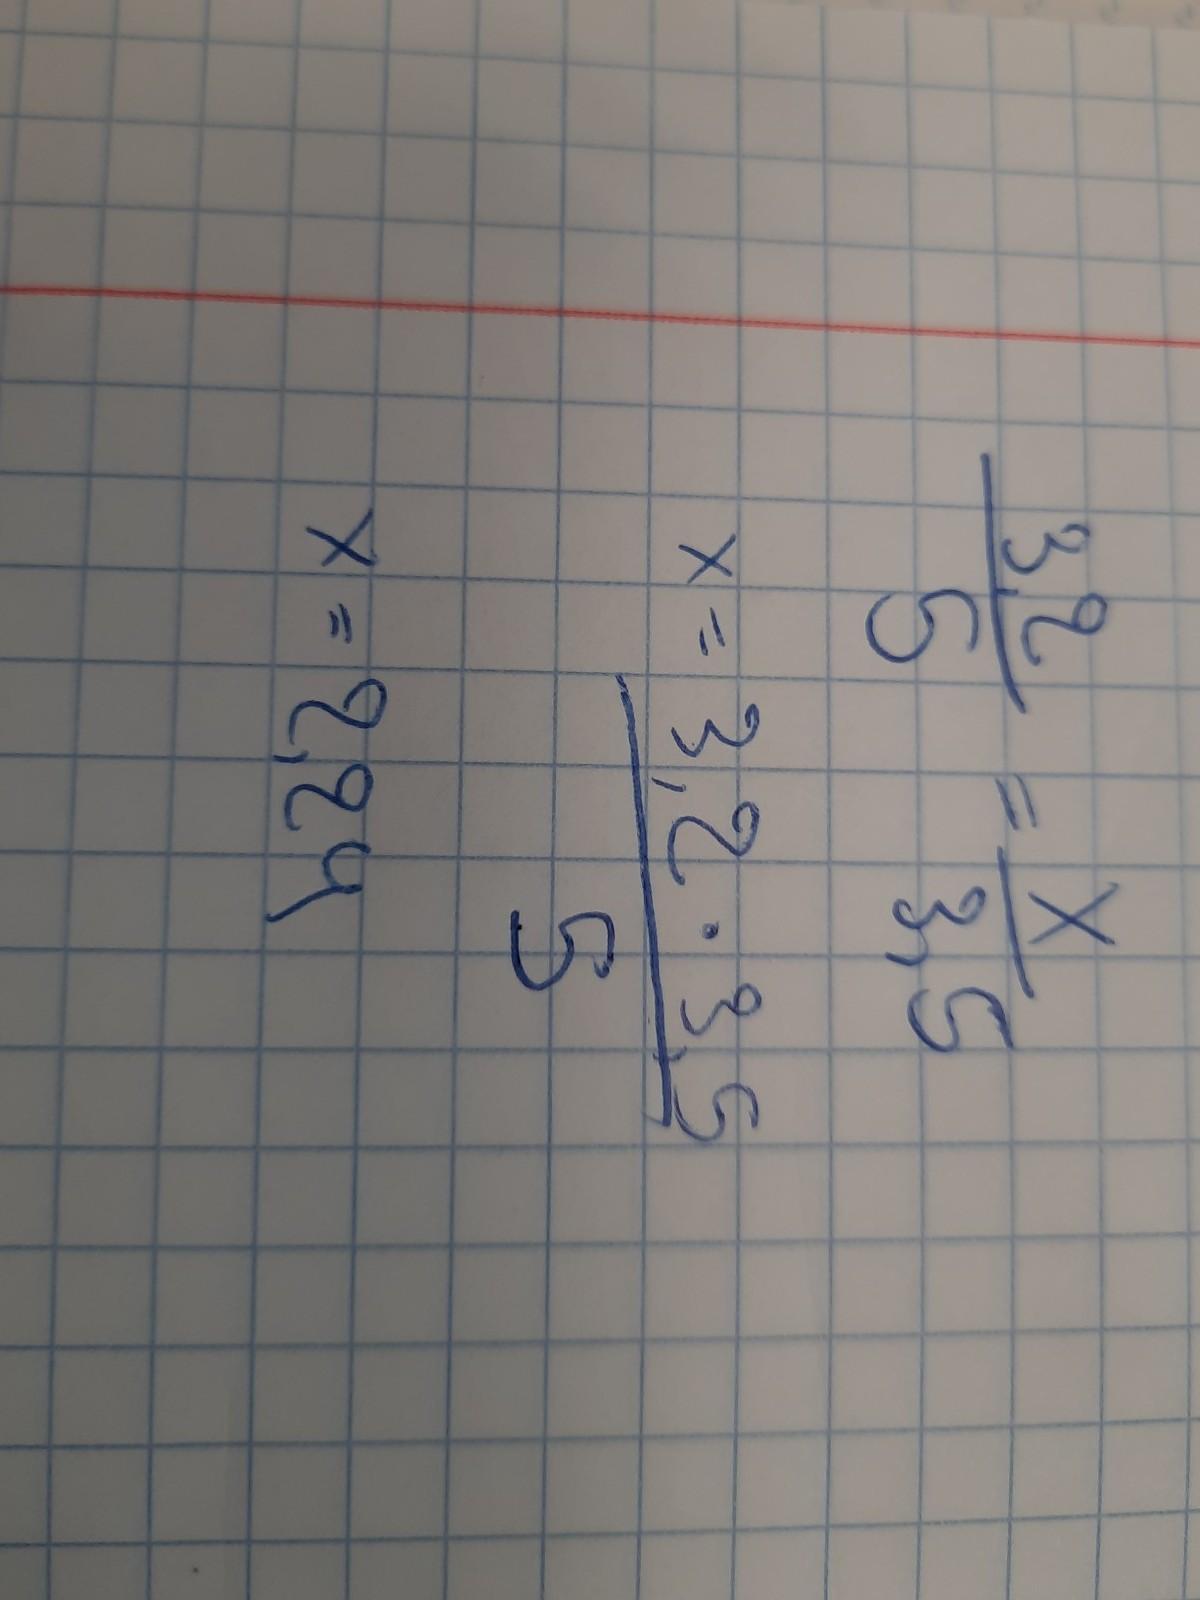 3,2/5 = x/3,5
x = 3,2 · 3,5/5
x = 2,24